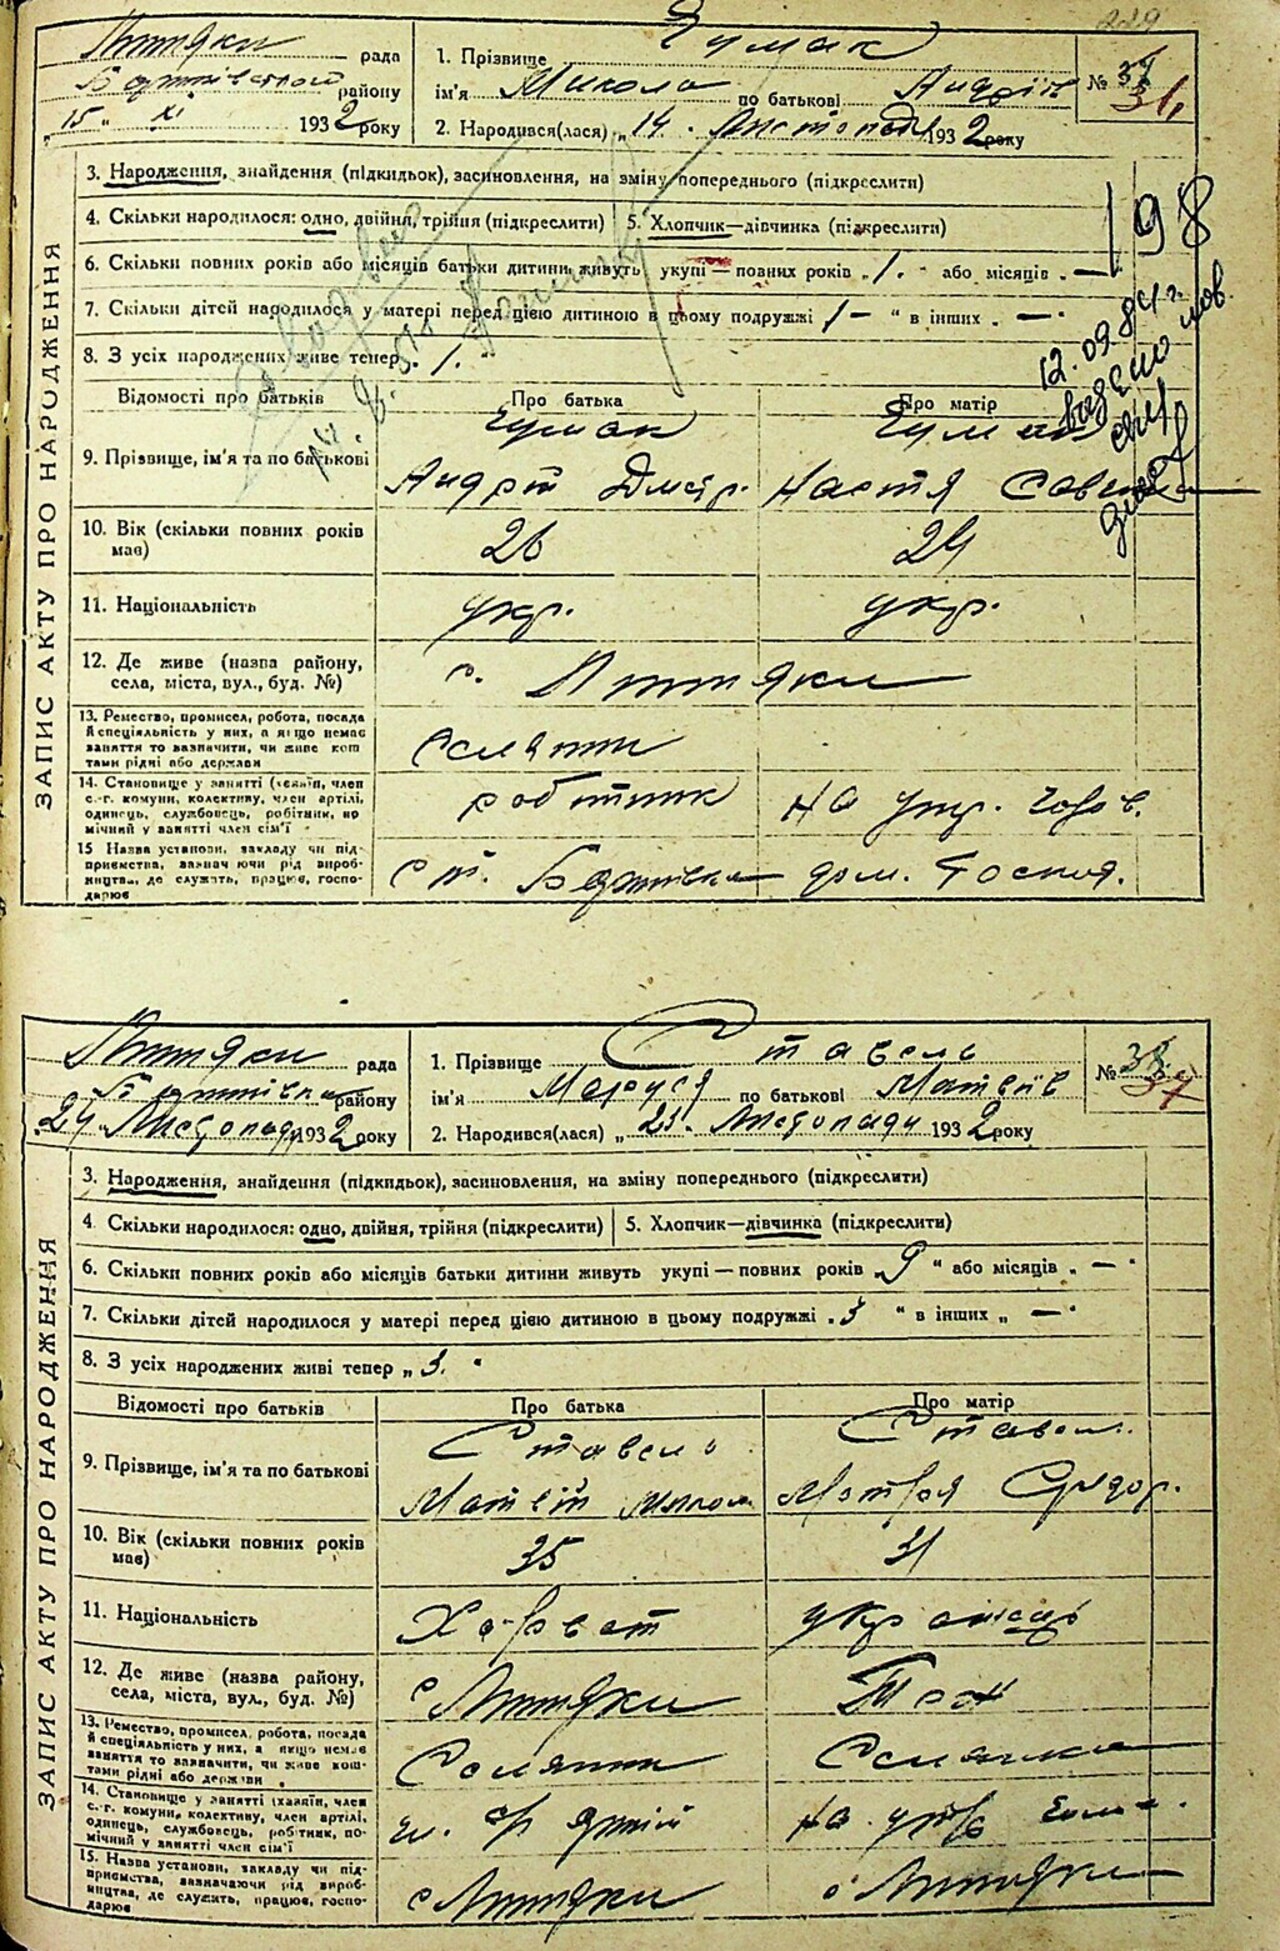 229
рада
1. Прізвище Чумак
району
ім'я Микола по батькові Андрій
№ 37
31
"15" XI 1932 року
2. Народився(лася) "14. Листопада 1932 року
ЗАПИС АКТУ ПРО НАРОДЖЕННЯ
3. Народження, знайдення (підкидьок), засиновлення, на зміну попереднього (підкреслити)
4. Скільки народилося: одно, двійня, трійня (підкреслити)
5. Хлопчик—дівчинка (підкреслити)
198
6. Скільки повних років або місяців батьки дитини живуть укупі — повних років "1." або місяців . —
7. Скільки дітей народилося у матері перед цією дитиною в цьому подружжі 1 — " в інших . — "
8. З усіх народжених живе тепер . 1. "
12.09.84 г.
видано пов.
свид
Відомості про батьків
Про батька
Про матір
9. Прізвище, ім'я та по батькові
Чумак
Чумак
Андрій Дмитр.
Настя
10. Вік (скільки повних років має)
26
24
11. Національність
укр.
укр.
12. Де живе (назва району,
села, міста, вул., буд. №)
с.
13. Ремество, промисел, робота, посада
й спеціяльність у них, а якщо немає
заняття то вазначити, чи живе кош
тами рідні або держави
14. Становище у занятті (хазяїн, член
с.-г. комуни, колективу, член артілі,
одинець, службовець, робітник, по
мічний у занятті член сім'ї
робітник
на утр. чолов.
15 Назва установи, закладу чи під-
приємства, зазнач ючи рід вироб-
ництва, де служить, працює, госпо-
дарює
ст.
дом. господ.
рада
1. Прізвище Ставель
району
ім'я Маруся по батькові Матвіїв
№ 38
37
24 Листопада 1932 року
2. Народився(лася) " 23. Листопада 1932 року
ЗАПИС АКТУ ПРО НАРОДЖЕННЯ
3. Народження, знайдення (підкидьок), засиновлення, на зміну попереднього (підкреслити)
4. Скільки народилося: одно, двійня, трійня (підкреслити)
5. Хлопчик—дівчинка (підкреслити)
6. Скільки повних років або місяців батьки дитини живуть укупі — повних років "9" або місяців " — "
7. Скільки дітей народилося у матері перед цією дитиною в цьому подружжі . 3 " в інших " — "
8. З усіх народжених живі тепер " 3. "
Відомості про батьків
Про батька
Про матір
9. Прізвище, ім'я та по батькові
Ставель
Ставель
Матвій Микол.
Мотря Сидор.
10. Вік (скільки повних років має)
35
31
11. Національність
Хорват
12. Де живе (назва району,
села, міста, вул., буд. №)
с
Там
13. Ремество, промисел, робота, посада
й спеціяльність у них, а якщо немає
заняття то зазначити, чи живе кош-
тами рідні або держави
Селянин
Селянка
14. Становище у занятті (хазяїн, член
с.-г. комуни, колективу, член артілі,
одинець, службовець, робітник, по-
мічний у занятті член сім'ї
чл.
на утр.
15. Назва установи, закладу чи під-
приємства, вазначаючи рід вироб-
ництва, де служить, працює, госпо-
дарює
с
с